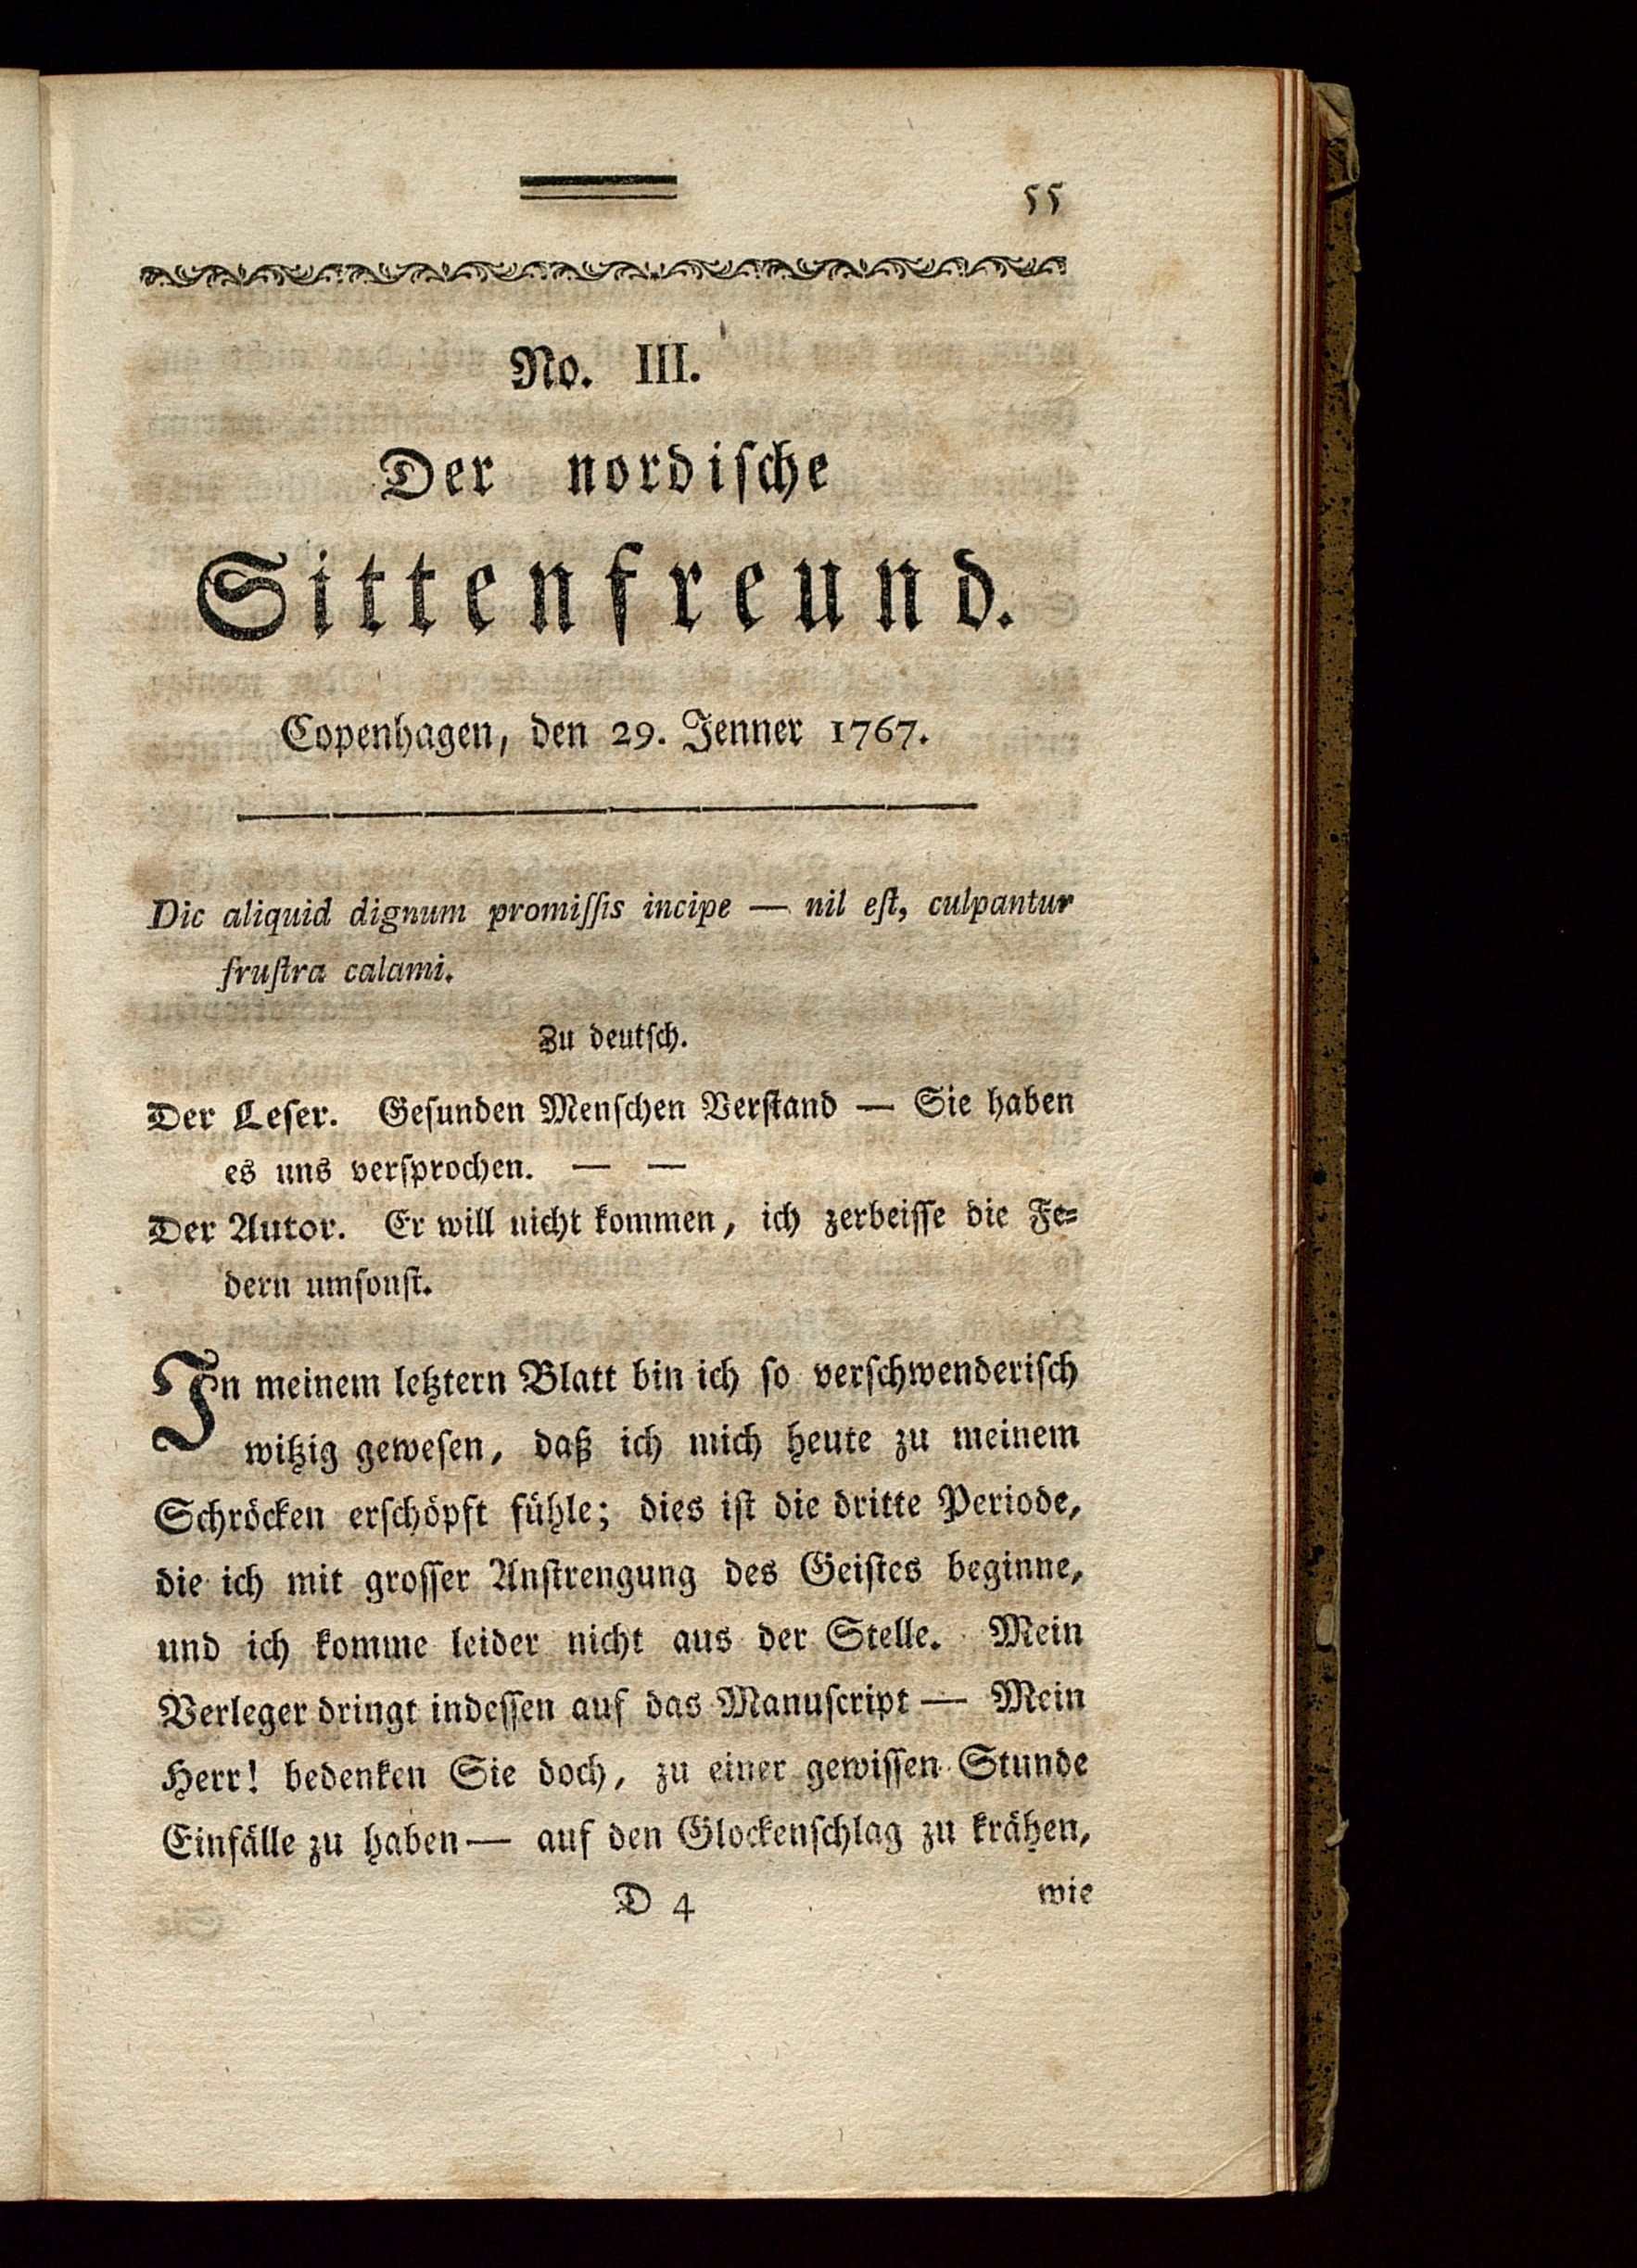 55
No. III.
Der nordische
Sittenfreund.
Copenhagen, den 29. Jenner 1767.
Dic aliquid dignum promiſſis incipe — nil eſt, culpantur
fruſtra calami.
Zu deutſch.
Der Leſer. Geſunden Menſchen Verſtand — Sie haben
es uns verſprochen. — —
Der Autor. Er will nicht kommen, ich zerbeiſſe die Fe-
dern umſonſt.
In meinem letztern Blatt bin ich ſo verſchwenderiſch
witzig geweſen, daß ich mich heute zu meinem
Schröcken erſchöpft fühle; dies iſt die dritte Periode,
die ich mit groſſer Anſtrengung des Geiſtes beginne,
und ich komme leider nicht aus der Stelle. Mein
Verleger dringt indeſſen auf das Manuſcript — Mein
Herr! bedenken Sie doch, zu einer gewiſſen Stunde
Einfälle zu haben — auf den Glockenſchlag zu krähen,
D 4 wie